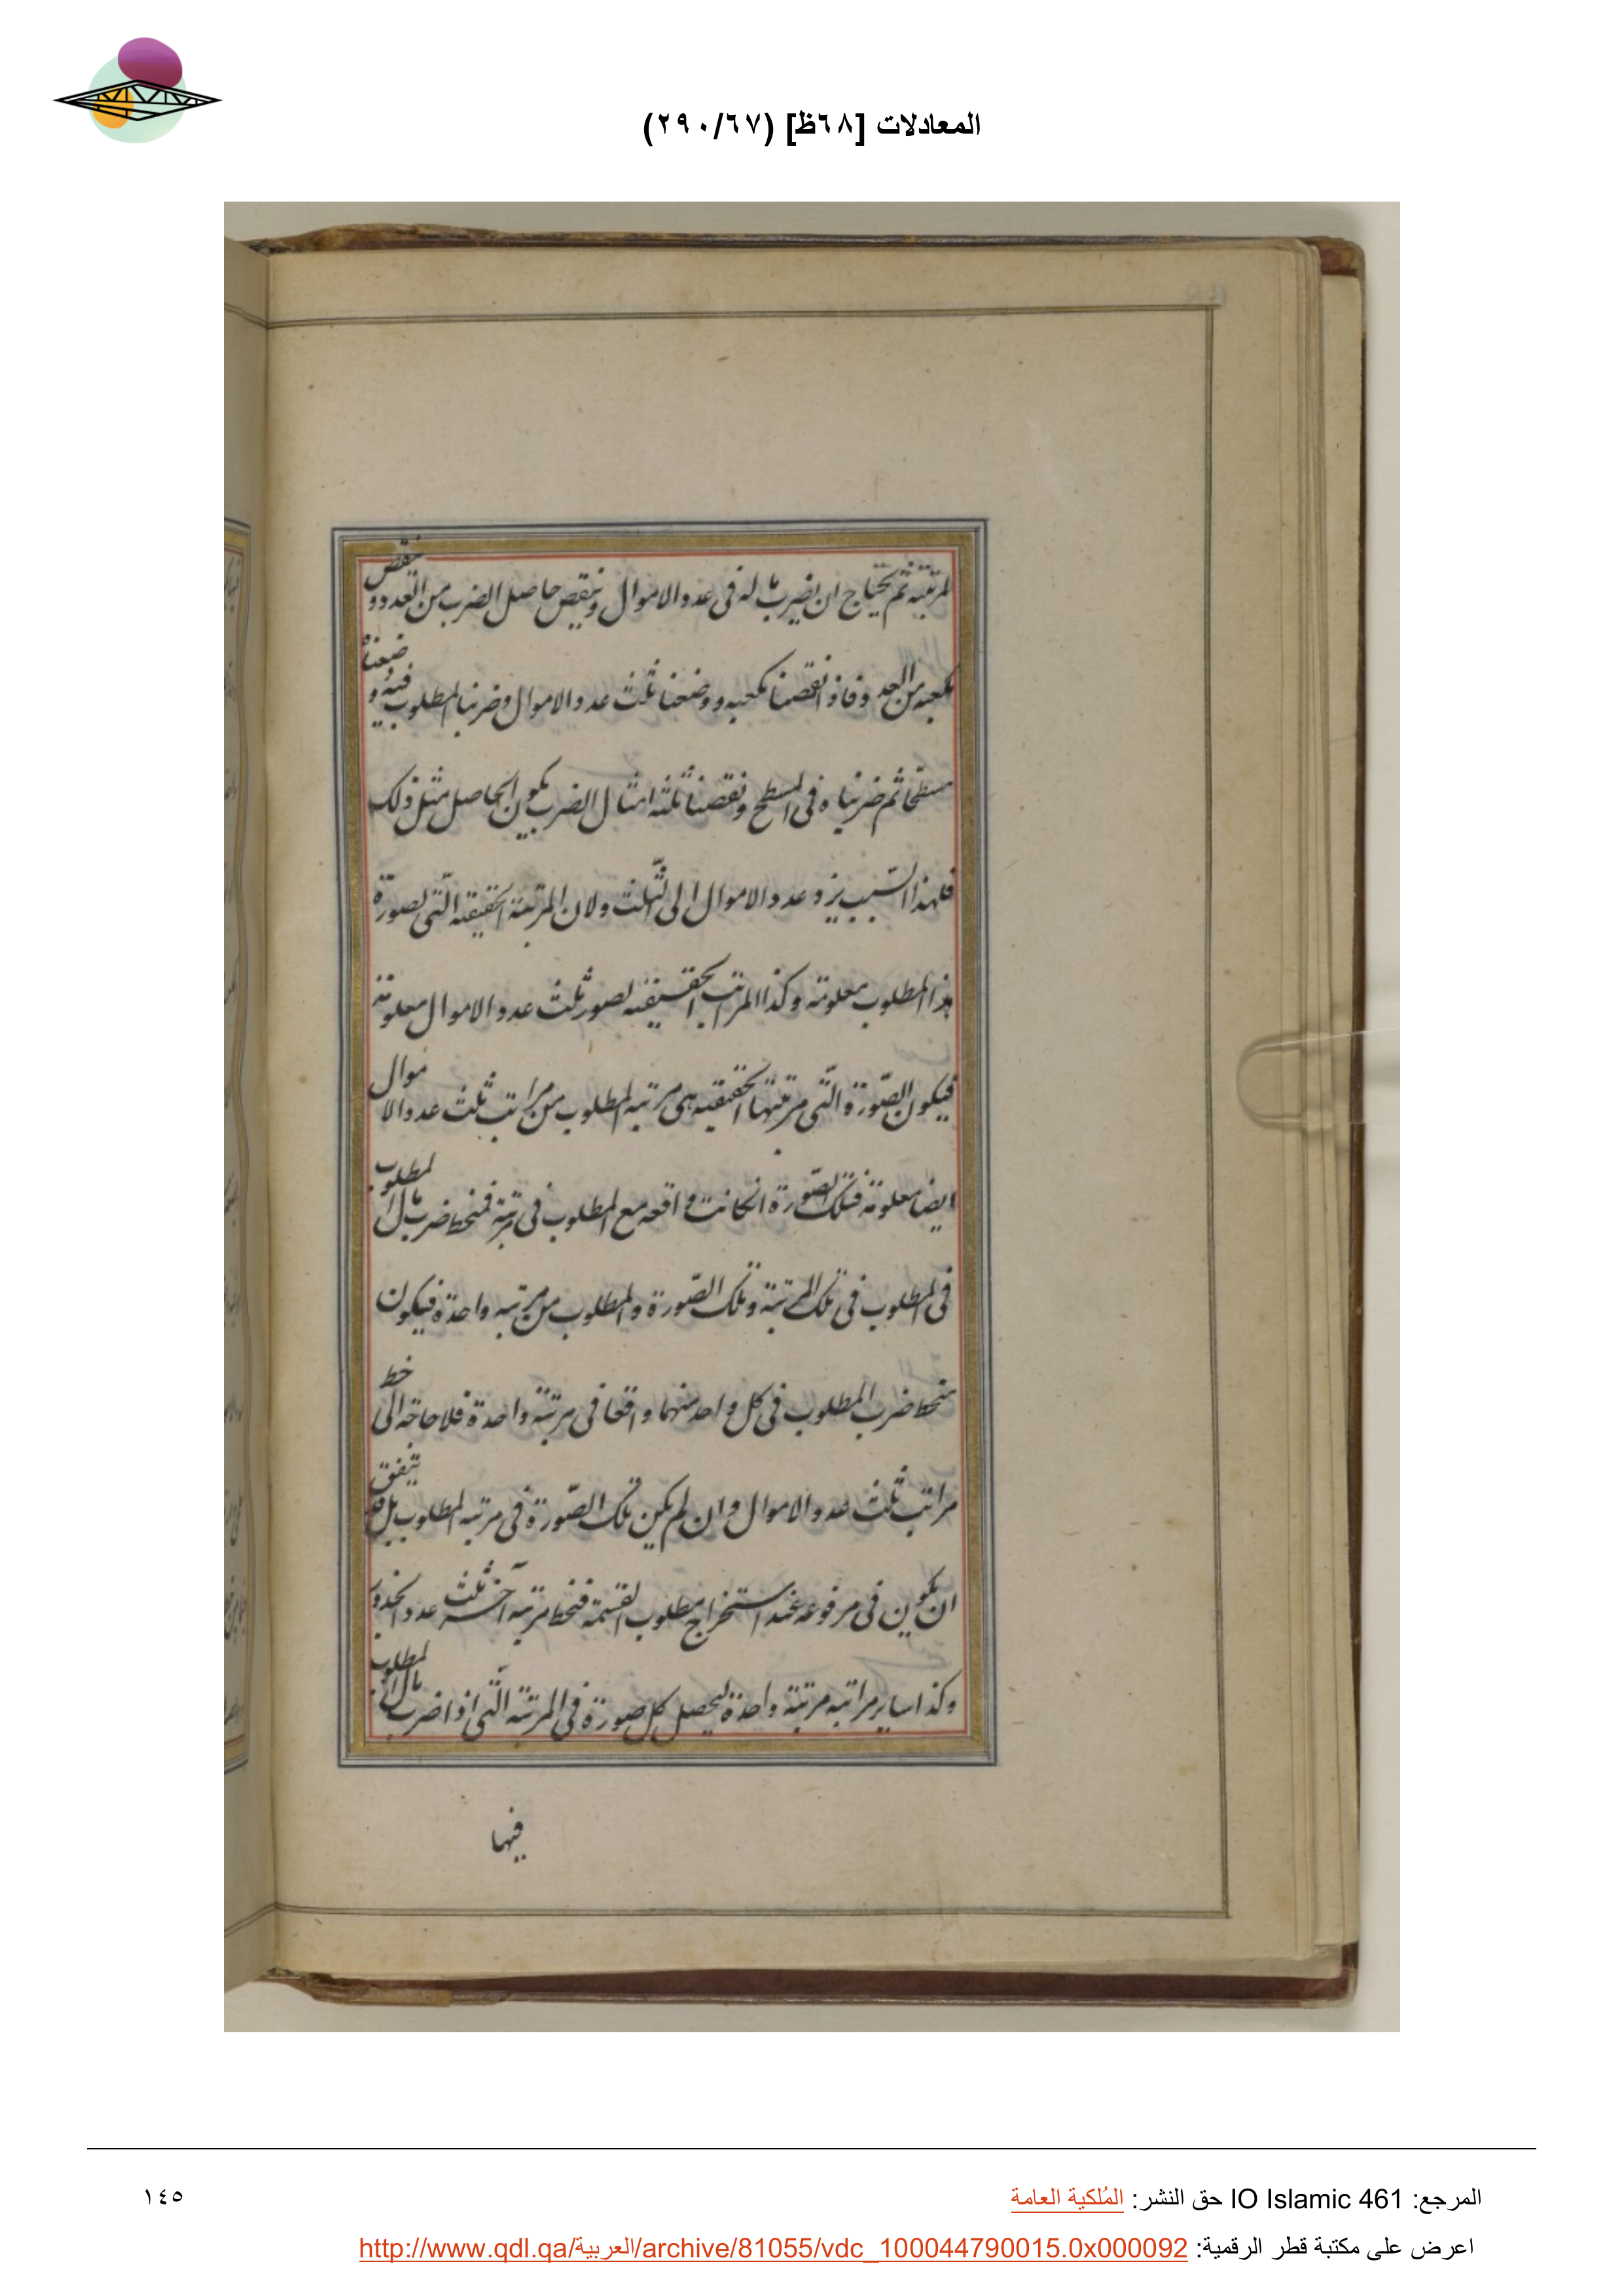 المعادلات [٦٨ظ] (٢٩٠/٦٧)
المرتبته ثم يحتاج ان يضرب ماله فى عدد الاموال وينقص حاصل الضرب من العدد و ينقص
مكعبه من العدد فاذا نقصنا مكعبه ووضعنا ثلث عدد الاموال وضربنا المطلوب فيه و ضعناه
مسطحا ثم ضربناه فى المسطح ونقصنا ثلثه امثال الضرب يكون الحاصل مثل ذلك
فلهذا السبب يرد عدد الاموال الى الثلث ولان المرتبة الحقيقيه التى لصورة
هذا المطلوب معلومة وكذا المراتب الحقيقيه لصور ثلث عدد الاموال معلومة
فيكون الصورة التى مرتبتها الحقيقيه هى مرتبه المطلوب من مراتب ثلث عدد الا موال
ايضا معلومة فتلك الصورة ان كانت واقعه مع المطلوب فى مرتبة فمنحط ضرب مال المطلوب
فى المطلوب فى تلك المرتبة وتلك الصورة والمطلوب من مرتبه واحدة فيكون
منحط ضرب المطلوب فى كل واحد منهما واقعا فى مرتبة واحدة فلا حاجه الى حط
مراتب ثلث عدد الاموال وان لم يكن تلك الصورة فى مرتبه المطلوب بل يتفق
ان يكون فى مرفوعه عند استخراج مطلوب القسمة فنحط مرتبه آخر ثلث عدد الجذور
وكذا ساير مراتبه مرتبة واحدة ليحصل كل صورة فى المرتبة التى اذا ضرب مال المطلوب
فيها
المرجع: IO Islamic 461 حق النشر: المُلكية العامة
١٤٥
اعرض على مكتبة قطر الرقمية: http://www.qdl.qa/العربية/archive/81055/vdc_100044790015.0x000092